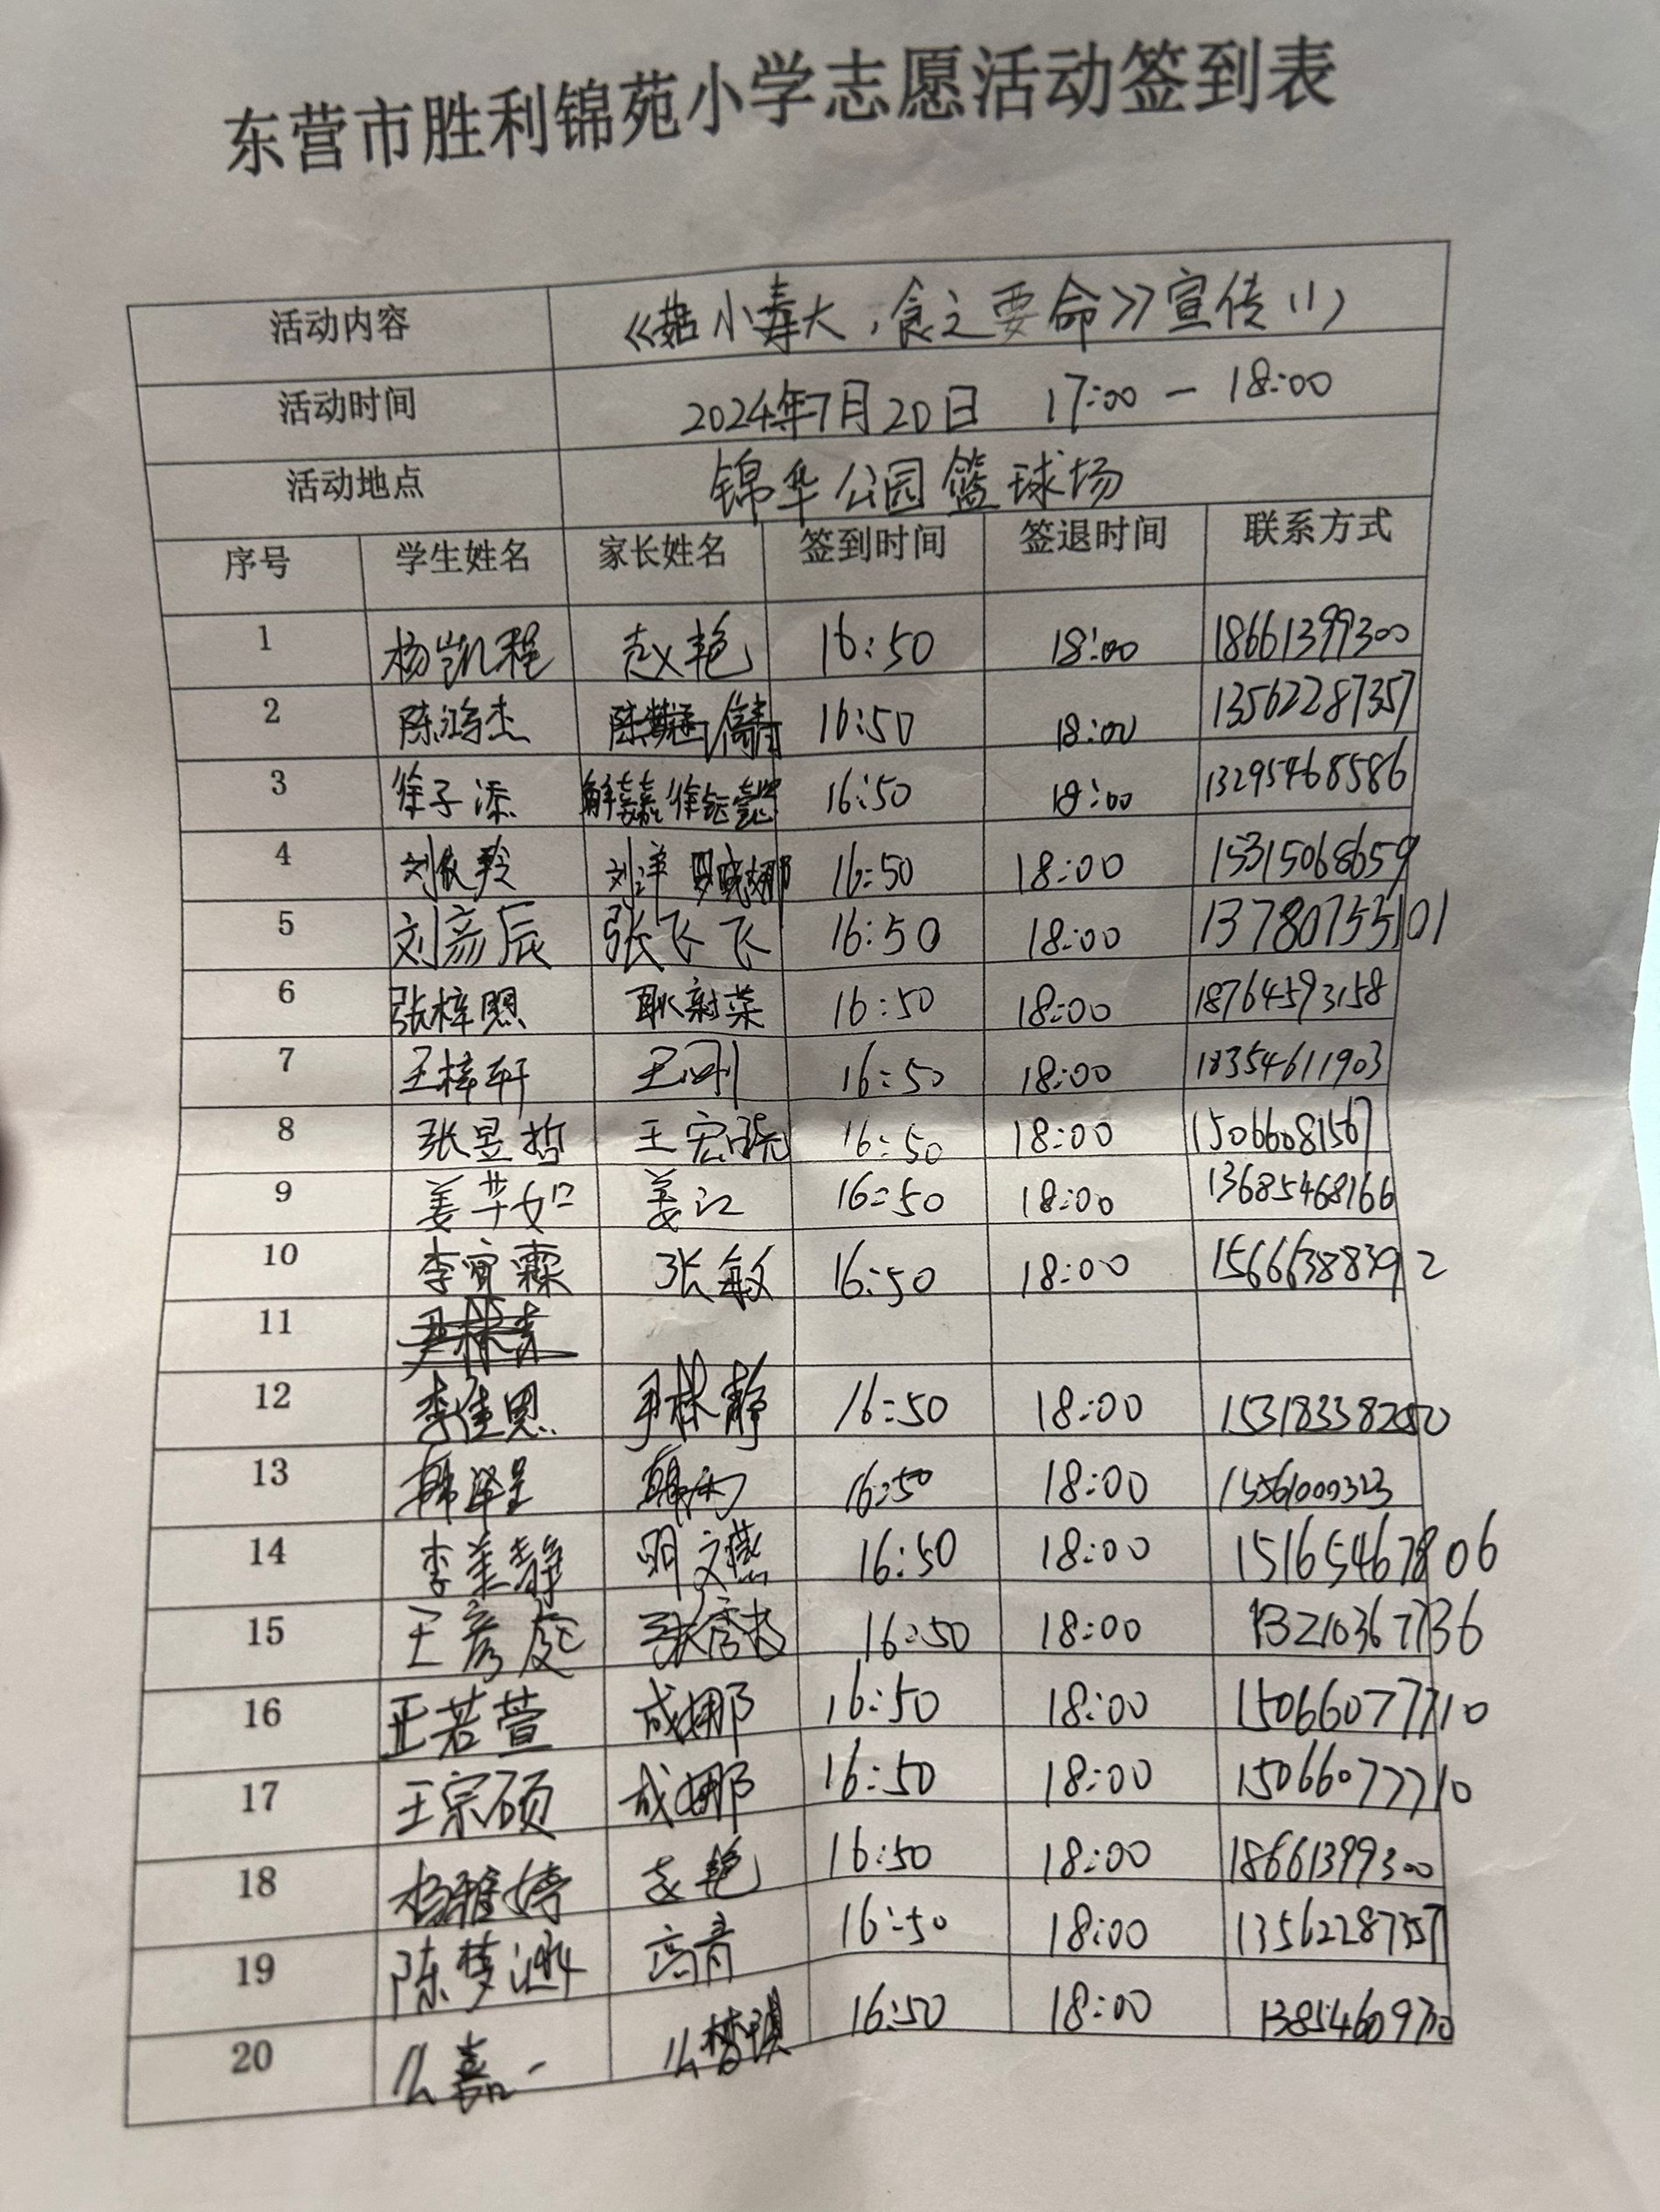 东营市胜利锦苑小学志愿活动签到表
活动内容 《菇小毒大，食之要命》宣传(1)
活动时间 2024年7月20日 17:00 — 18:00
活动地点 锦华公园篮球场
序号 学生姓名 家长姓名 签到时间 签退时间 联系方式
1 杨凯程 赵艳 16:50 18:00 18661399300
2 陈鸿杰 16:50 18:00 13562287357
3 徐子添 16:50 18:00 13295468586
4 刘 刘洋 16:50 18:00 15315068659
5 刘彦辰 张飞飞 16:50 18:00 13780755101
6 张梓 耿 菜 16:50 18:00 18764593158
7 王梓轩 王刚 16:50 18:00 18354611903
8 张昱哲 王宏 16:50 18:00 15066081567
9 姜芊如 姜江 16:50 18:00 13685468166
10 李宜霖 张敏 16:50 18:00 15666388392
11
12 李佳恩 尹林静 16:50 18:00
13 韩泽呈 16:50 18:00
14 李美静 明文燕 16:50 18:00 15165467806
15 王彦 张秀 16:50 18:00 13210367736
16 王若萱 成娜 16:50 18:00 15066077710
17 王宗硕 成娜 16:50 18:00 15066077710
18 杨雅婷 赵艳 16:50 18:00 18661399300
19 陈梦涵 高青 16:50 18:00 13562287357
20 么嘉一 么梦琪 16:50 18:00 13854609700